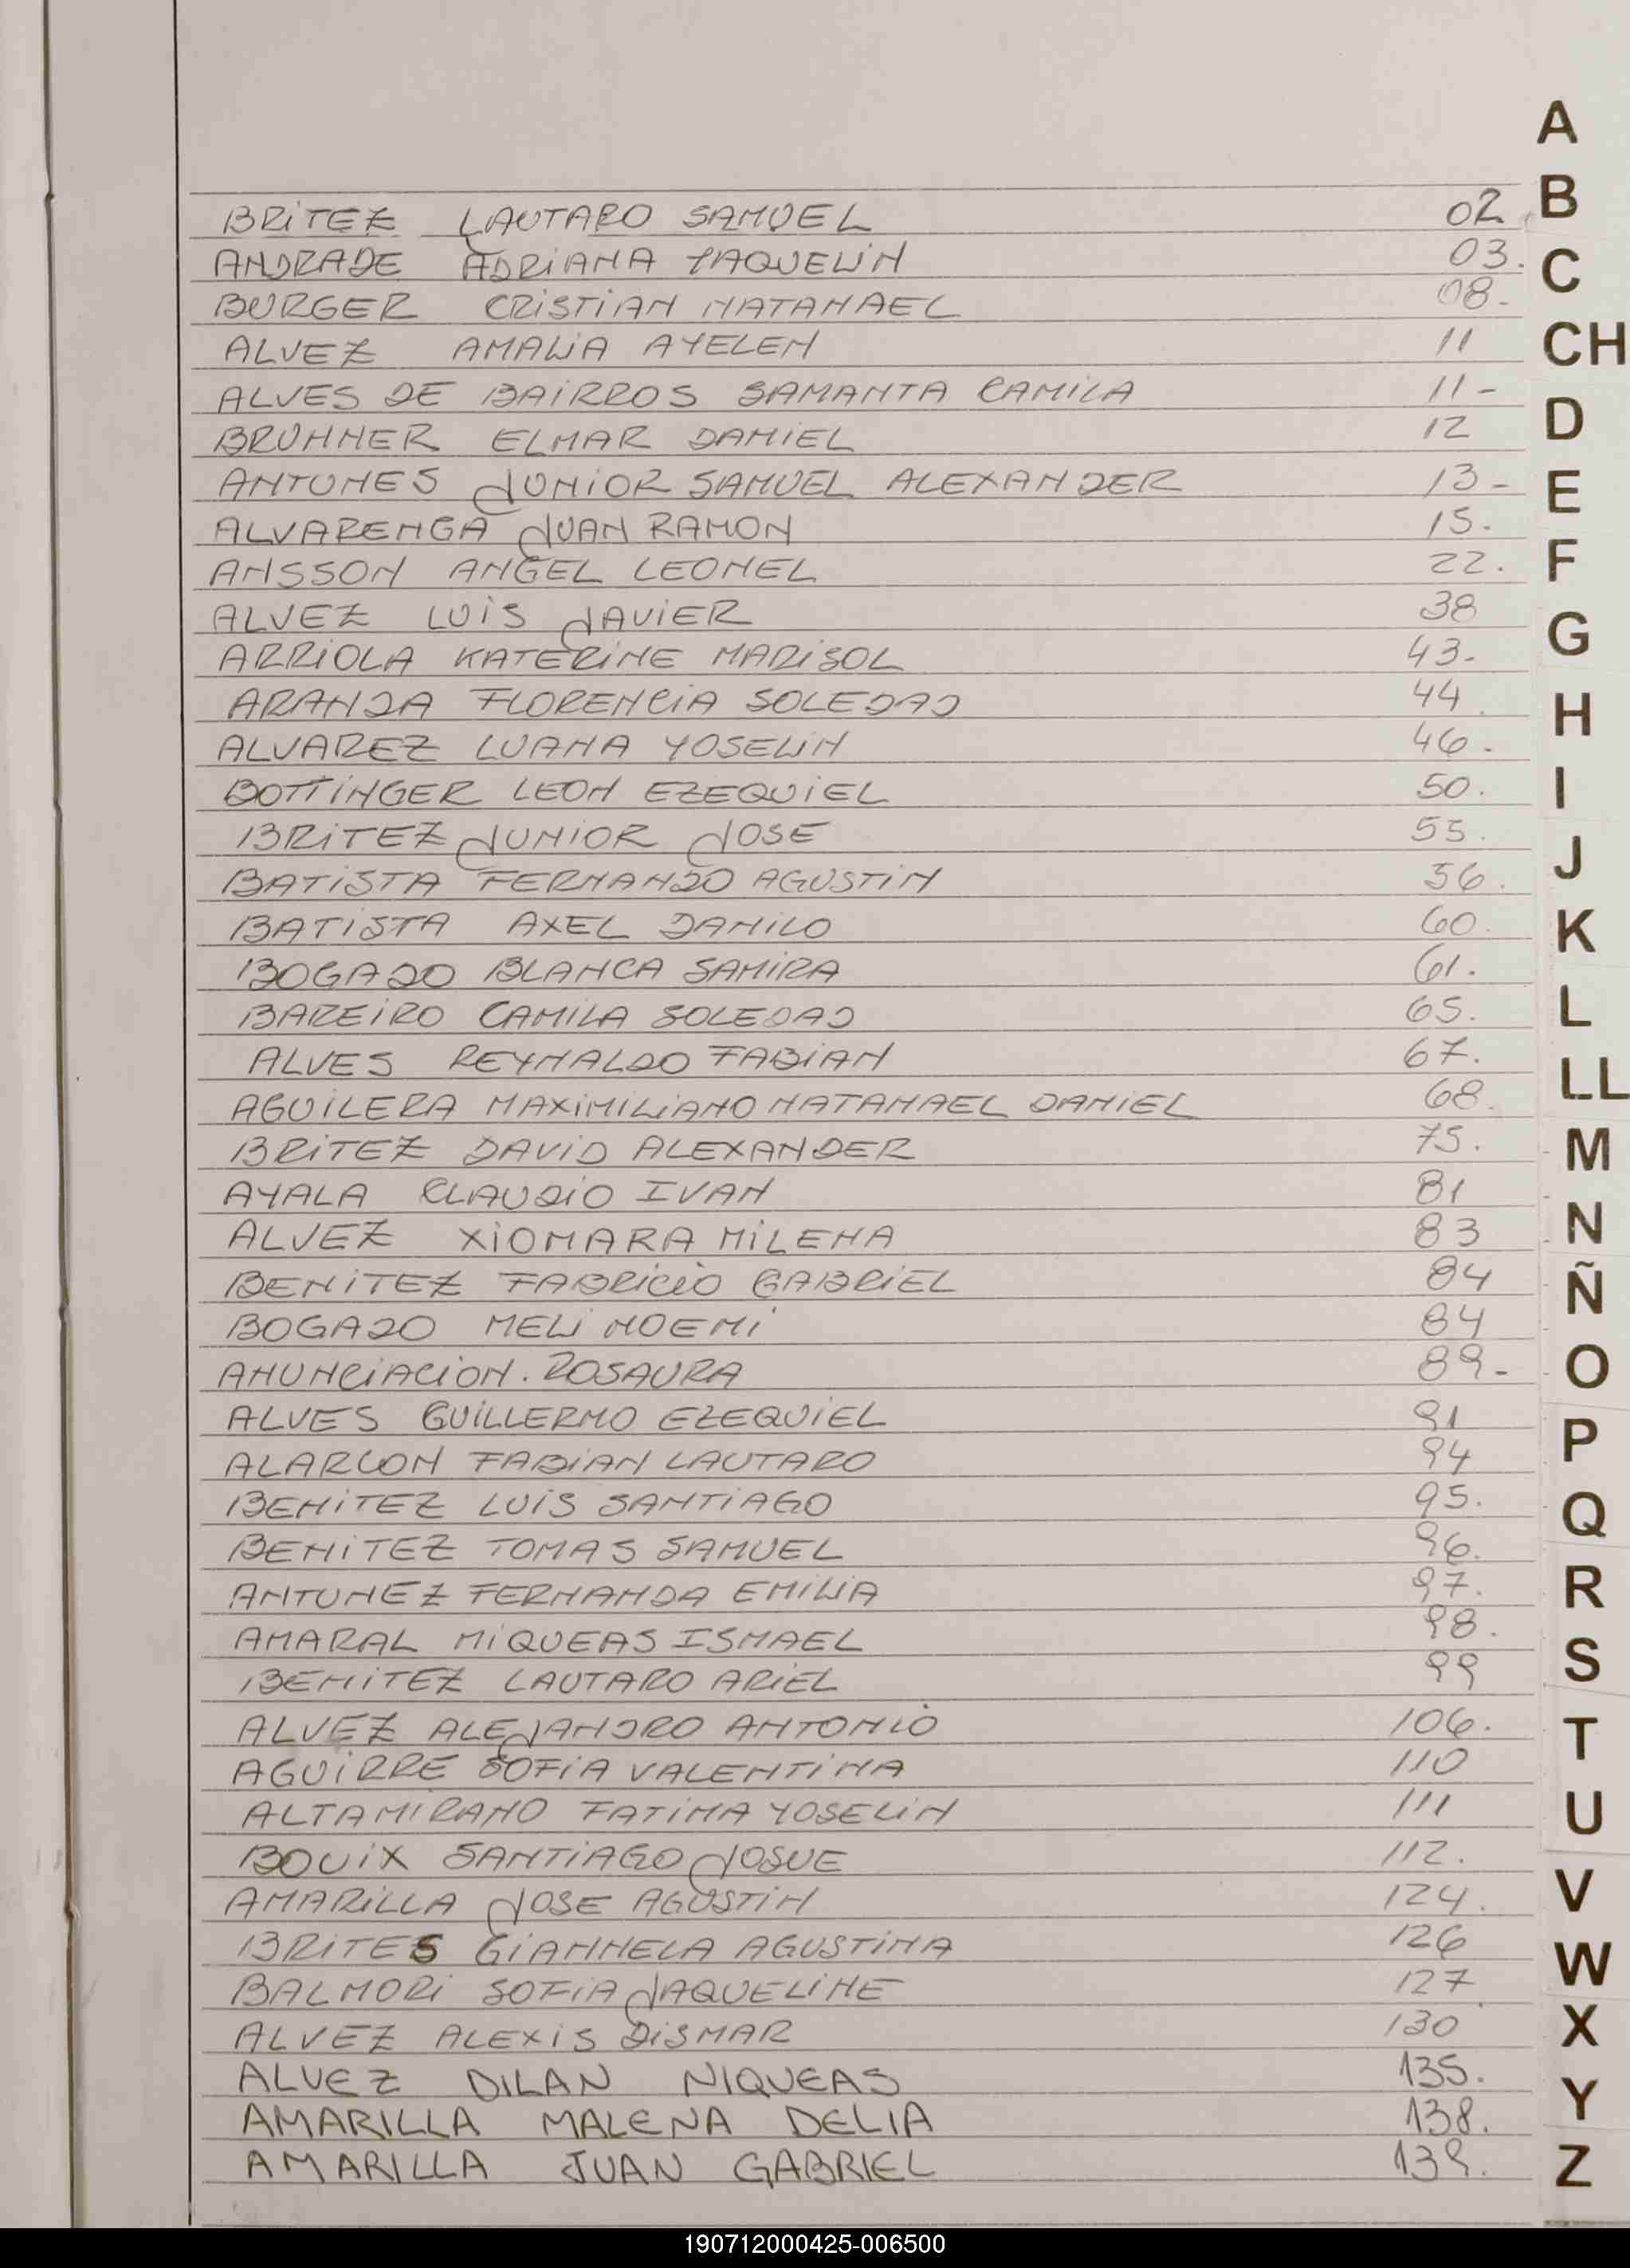 BRITEZ LAUTARO SAMUEL 02
ANDRADE ADRIANA YAQUELIN 03.
BURGER CRISTIAN NATANAEL 08-
ALVEZ AMALIA AYELEN 11
ALVES DE BAIRROS SAMANTA CAMILA 11-
BRUNNER ELMAR DANIEL 12
ANTUNES JUNIOR SAMUEL ALEXANDER 13-
ALVARENGA JUAN RAMON 15.
ANSSON ANGEL LEONEL 22.
ALVEZ LUIS JAVIER 38
ARRIOLA KATERINE MARISOL 43-
ARANDA FLORENCIA SOLEDAD 44
ALVAREZ LUANA YOSELIN 46.
BOTTINGER LEON EZEQUIEL 50.
BRITEZ JUNIOR JOSE 55.
BATISTA FERNANDO AGUSTIN 56.
BATISTA AXEL DANILO 60.
BOGADO BLANCA SAMIRA 61.
BAREIRO CAMILA SOLEDAD 65.
ALVES REYNALDO FABIAN 67.
AGUILERA MAXIMILIANO NATANAEL DANIEL 68.
BRITEZ DAVID ALEXANDER 75.
AYALA CLAUDIO IVAN 81
ALVEZ XIOMARA MILENA 83
BENITEZ FABRICIO GABRIEL 84
BOGADO MELI NOEMI 84
ANUNCIACION. ROSAURA 89-
ALVES GUILLERMO EZEQUIEL 91
ALARCON FABIAN LAUTARO 94
BENITEZ LUIS SANTIAGO 95.
BENITEZ TOMAS SAMUEL 96.
ANTUNEZ FERNANDA EMILIA 97.
AMARAL MIQUEAS ISMAEL 98.
BENITEZ LAUTARO ARIEL 99
ALVEZ ALEJANDRO ANTONIO 106.
AGUIRRE SOFIA VALENTINA 110
ALTAMIRANO FATIMA YOSELIN 111
BOUIX SANTIAGO JOSUE 112.
AMARILLA JOSE AGUSTIN 124.
BRITES GIANNELA AGUSTINA 126
BALMORI SOFIA JAQUELINE 127
ALVEZ ALEXIS DISMAR 130
ALVEZ DILAN NIQUEAS 135.
AMARILLA MALENA DELIA 138.
AMARILLA JUAN GABRIEL 139.
A
B
C
CH
D
E
F
G
H
I
J
K
L
LL
M
N
Ñ
O
P
Q
R
S
T
U
V
W
X
Y
Z
190712000425-006500